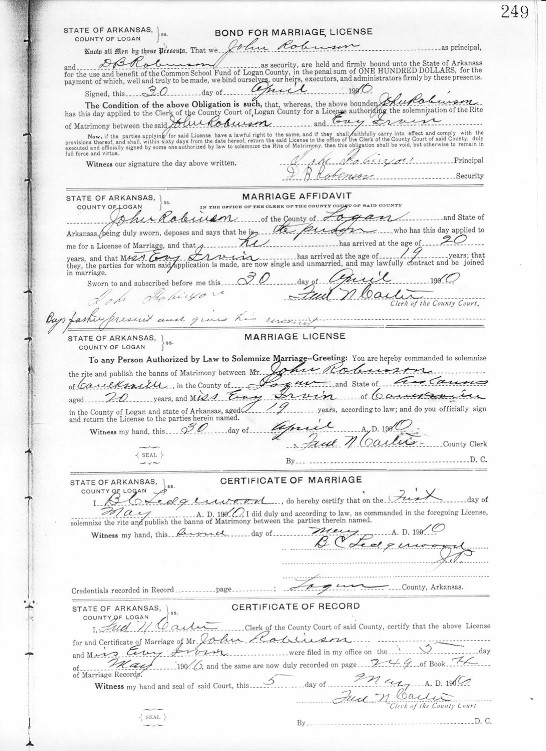 249
STATE OF ARKANSAS, } ss. BOND FOR MARRIAGE, LICENSE
COUNTY OF LOGAN
Know all Men by these Presents, That we John Robinson as principal,
and D B Robinson as security, are held and firmly bound unto the State of Arkansas
for the use and benefit of the Common School Fund of Logan County, in the penal sum of ONE HUNDRED DOLLARS, for the
payment of which, well and truly to be made, we bind ourselves, our heirs, executors, and administrators firmly by these presents.
Signed, this 30 day of April 1910
The Condition of the above Obligation is such, that, whereas, the above bounden John Robinson
has this day applied to the Clerk of the County Court of Logan County for a License authorizing the solemnization of the Rite
of Matrimony between the said John Robinson and Eavy Irvin
Now, if the parties applying for said License have a lawful right to the same, and if they shall faithfully carry into effect and comply with the
provisions thereof, and shall, within sixty days from the date hereof, return the said License to the office of the Clerk of the County Court of said County duly
executed and officially signed by some one authorized by law to solemnize the Rite of Matrimony, then this obligation shall be void, but otherwise to remain in
full force and virtue.
Witness our signature the day above written. Robinson Principal
D. B Robinson Security
STATE OF ARKANSAS } ss. MARRIAGE AFFIDAVIT
COUNTY OF LOGAN IN THE OFFICE OF THE CLERK OF THE COUNTY COURT OF SAID COUNTY
John Robinson of the County of Logan and State of
Arkansas, being duly sworn, deposes and says that he is the person who has this day applied to
me for a License of Marriage, and that he has arrived at the age of 20
years, and that Miss Eavy Irvin has arrived at the age of 19 years; that
they, the parties for whom said application is made, are now single and unmarried, and may lawfully contract and be joined
in marriage.
Sworn to and subscribed before me this 30 day of April 1910
Robinson Fred N Carter
Clerk of the County Court,
Boys father present and gives his consent
STATE OF ARKANSAS, } ss. MARRIAGE LICENSE
COUNTY OF LOGAN
To any Person Authorized by Law to Solemnize Marriage–Greeting: You are hereby commanded to solemnize
the rite and publish the banns of Matrimony between Mr. John Robinson
of Caulksville, in the County of Logan and State of Arkansas
aged 20 years, and Miss Eavy Irvin of Caulksville
in the County of Logan and state of Arkansas, aged 19 years, according to law; and do you officially sign
and return the License to the parties herein named.
Witness my hand, this 30 day of April A. D. 1910
Fred N Carter County Clerk
{ SEAL } By D. C.
STATE OF ARKANSAS, } ss. CERTIFICATE OF MARRIAGE
COUNTY OF LOGAN
I, B C Ledgerwood, do hereby certify that on the First day of
May A. D. 1910, I did duly and according to law, as commanded in the foregoing License,
solemnize the rite and publish the banns of Matrimony between the parties therein named.
Witness my hand, this second day of May A. D. 1910
B C Ledgerwood
J.P.
Credentials recorded in Record page ; Logan County, Arkansas.
STATE OF ARKANSAS, } ss. CERTIFICATE OF RECORD
COUNTY OF LOGAN
I, Fred N Carter Clerk of the County Court of said County, certify that the above License
for and Certificate of Marriage of Mr. John Robinson
and Miss Eavy Irvin were filed in my office on the 5 day
of May 1910, and the same are now duly recorded on page 249 of Book H
of Marriage Records.
Witness my hand and seal of said Court, this 5 day of May A. D. 1910
Fred N Carter
Clerk of the County Court
{ SEAL } By D. C.